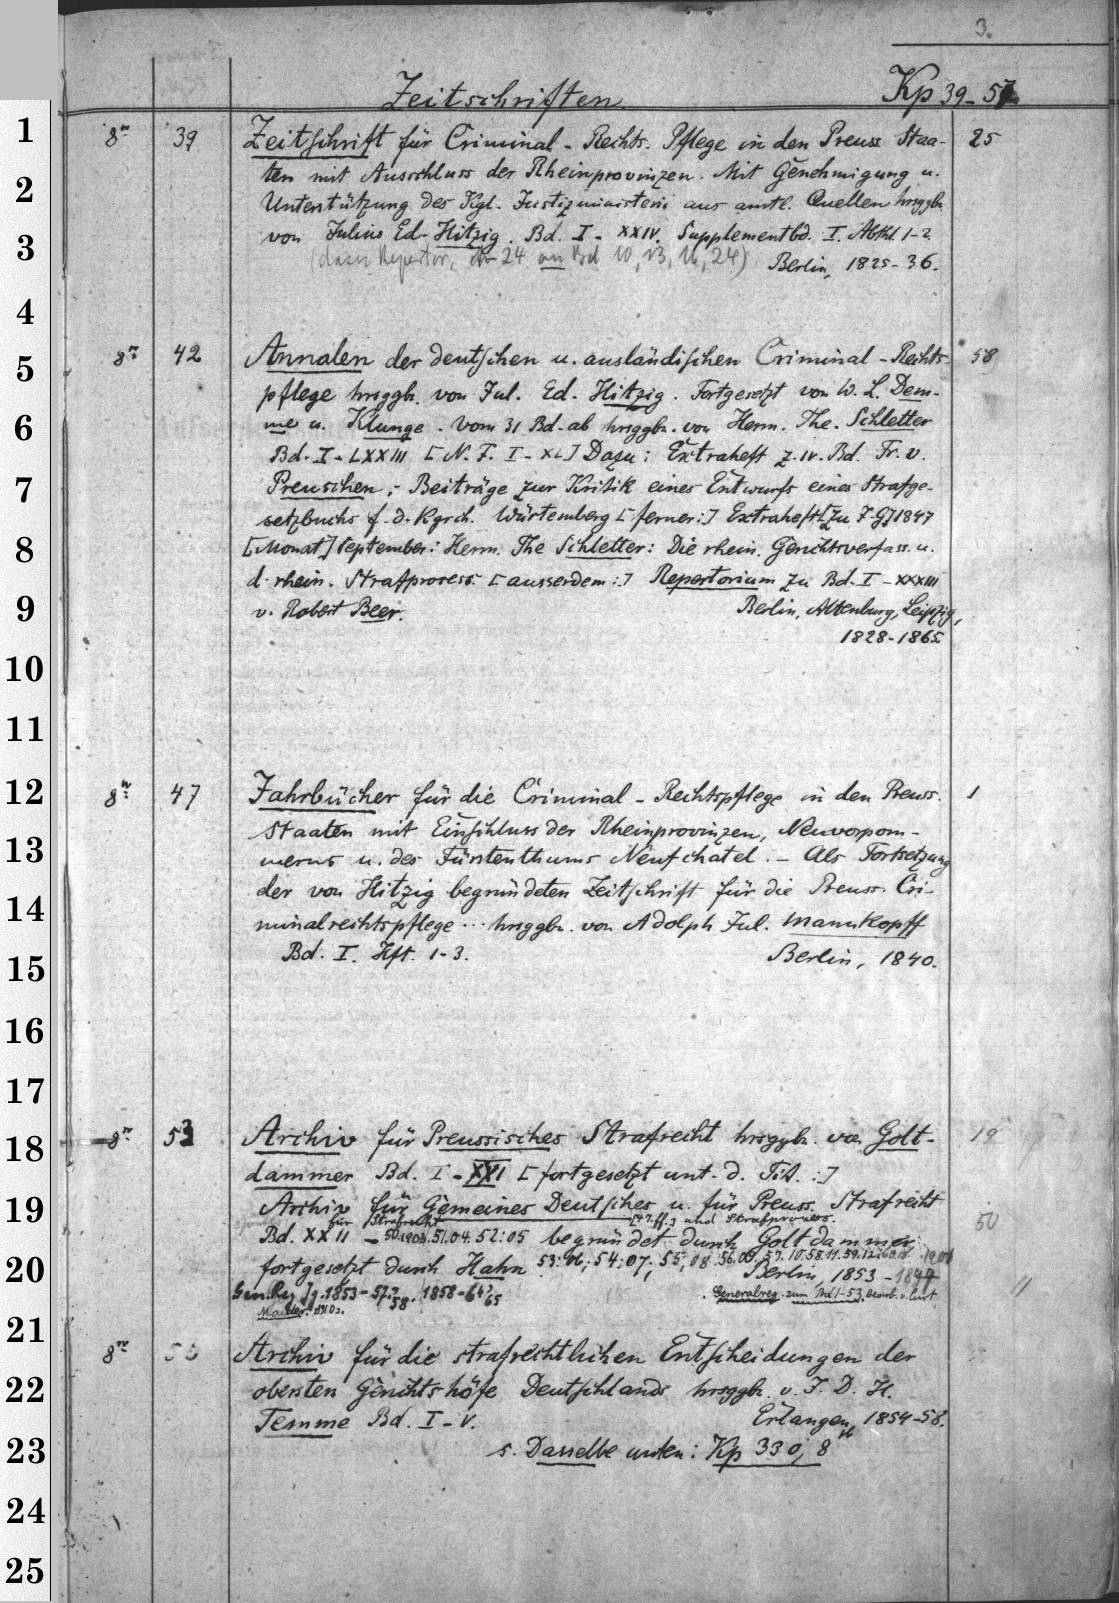 3.
Zeitschriften Kp 39-57
1
8° 39 Zeitschrift für Criminal-Rechts-Pflege in den Preuss. Staa- 25
2
ten mit Ausschluss der Rheinprovinzen. Mit Genehmigung u.
Unterstützung des Kgl. Justizministerii aus amtl. Quellen hrsggb.
3
von Julius Ed. Hitzig. Bd. I-XXIV. Supplementbd. I. Abth. 1-2
(dazu Repertor, 24 an Bd 10, 13, 16, 24) Berlin, 1825-36.
4
5
8° 42 Annalen der deutschen u. ausländischen Criminal-Rechts- 58
pflege hrsggb. von Jul. Ed. Hitzig. Fortgesetzt von W. L. Dem-
6
me u. Klunge. Vom 31 Bd. ab hrsggbn. von Herm. The. Schletter
Bd. I-LXXIII [N. F. I-XL] Dazu: Extraheft z. IV. Bd. Fr. v.
7
Preuschen: Beiträge zur Kritik eines Entwurfs eines Strafge-
setzbuchs f. d. Kgrch. Würtemberg [ferner:] Extraheft [zu 7-9] 1847
8
[Monat] September: Herm. The Schletter: Die rhein. Gerichtsverfass. u.
d. rhein. Strafprocess [ausserdem:] Repertorium zu Bd. I-XXXIII
9
v. Robert Beer. Berlin, Altenburg, Leipzig,
1828-1865.
10
11
12
8° 47 Jahrbücher für die Criminal-Rechtspflege in den Preuss. 1
Staaten mit Einschluss der Rheinprovinzen, Neuvorpom-
13
merns u. des Fürstenthums Neufchatel. - Als Fortsetzung
der von Hitzig begründeten Zeitschrift für die Preuss. Cri-
14
minalrechtspflege ... hrsggbn. von Adolph Jul. Mannkopff
15
Bd. I. Hft. 1-3. Berlin, 1840.
16
17
18
8° 53 Archiv für Preussisches Strafrecht hrsggb. von Golt- 19
dammer Bd. I-XXI [fortgesetzt unt. d. Tit.:]
19
Archiv für Gemeines Deutsches u. für Preuss. Strafrecht 50
für Strafrecht [47.ff.] und Strafprocess.
Bd. XXII - 50.1903. 51.04. 52:05 begründet durch Goltdammer
20
fortgesetzt durch Hahn 53:06; 54:07; 55,08. 56.09, 57.10. 58.11. 59.12. Berlin, 1853-
Gen. Reg Jg. 1853-57. 58. 1858-64/65 Generalreg. zum Bd 1-53. bearb. v. Curt
21
8° Archiv für die strafrechtlichen Entscheidungen der
22
obersten Gerichtshöfe Deutschlands hrsggb. v. J. D. H.
Temme Bd. I-V. Erlangen, 1854-58.
23
s. Dasselbe unten: Kp 330, 8
24
25